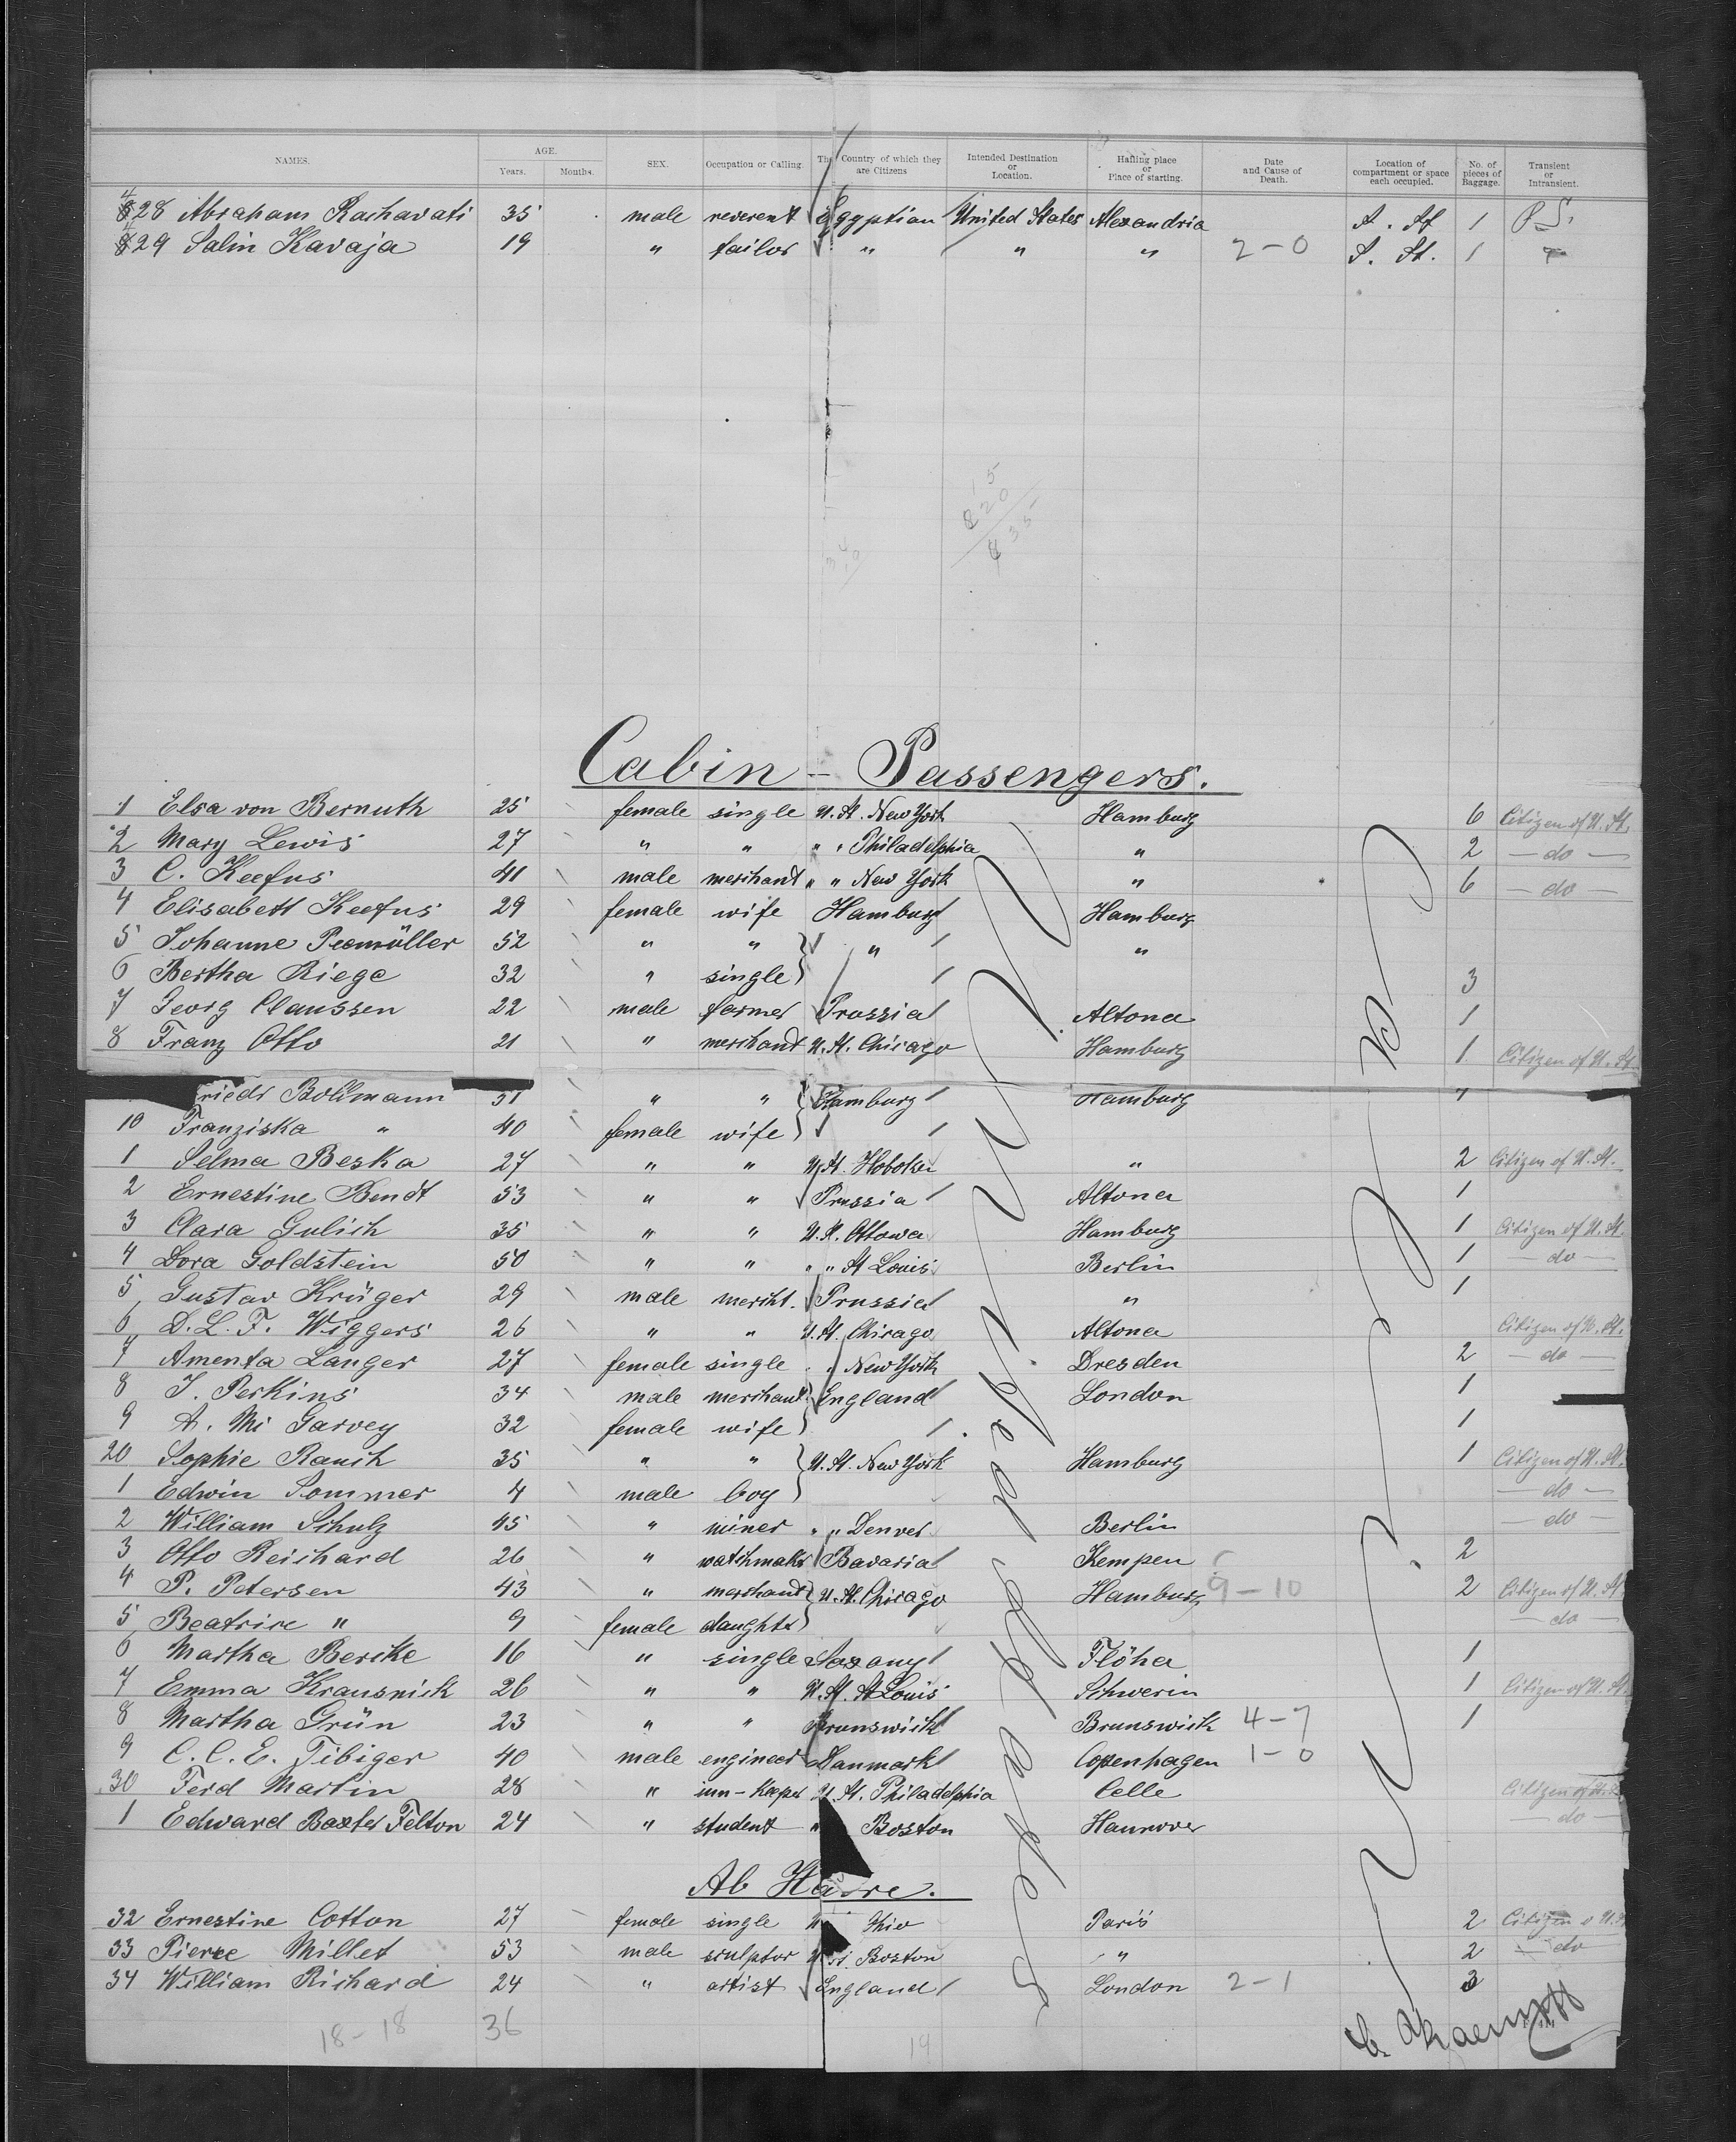 NAMES. AGE. Years. Months. SEX. Occupation or Calling. The Country of which they are Citizens Intended Destination or Location. Hailing place or Place of starting. Date and Cause of Death. Location of compartment or space each occupied. No. of pieces of Baggage. Transient or Intransient.
428 Abraham Rachavati 35 male reverent Egyptian United States Alexandria A. St 1 P.S.
429 Salin Kavaja 19 " tailor " " " 2-0 S. St. 1 "
15
220
435
Cabin - Passengers.
1 Elsa von Bernuth 25 female single U.St. New York Hamburg 6 Citizen of U.St.
2 Mary Lewis 27 " " " " Philadelphia " 2 - do -
3 C. Keefus 41 male merchant " " New York " 6 - do -
4 Elisabett Keefus 29 female wife Hamburg Hamburg
5 Johanne Pexmüller 52 " " " "
6 Bertha Riege 32 " single 3
7 Georg Claussen 22 male farmer Prussia Altona 1
8 Franz Otto 21 " merchant U.St. Chicago Hamburg 1 Citizen of U.St.
riedr Bollmann 51 " " Hamburg Hamburg "
10 Franziska " 40 female wife
1 Selma Beska 27 " " U.St. Hoboken " 2 Citizen of U.St.
2 Ernestine Bendt 53 " " Prussia Altona 1
3 Clara Gulich 35 " " U.St. Ottowa Hamburg 1 Citizen of U.St.
4 Dora Goldstein 50 " " " " St Louis Berlin 1 - do -
5 Gustav Krüger 29 male mercht. Prussia " 1
6 D.L.F. Wiggers 26 " " U.St. Chicago Altona Citizen of U.St.
7 Amenta Langer 27 female single " " New York Dresden 2 - do -
8 J. Perkins 34 male merchant England London 1
9 A. Mc Garvey 32 female wife 1
20 Sophie Rauch 35 " " U.St. New York Hamburg 1 Citizen of U.St.
1 Edwin Sommer 4 male boy - do -
2 William Schulz 45 " miner " " Denver Berlin - do -
3 Otto Reichard 26 " watchmakr Bavaria Kempen 2
4 P. Petersen 43 " merchant U.St. Chicago Hamburg 9-10 2 Citizen of U.St.
5 Beatrice " 9 female daughter - do -
6 Martha Bericke 16 " single Saxany Flöha 1
7 Emma Krausnick 26 " " U.St. St Louis Schwerin 1 Citizen of U.St.
8 Martha Grün 23 " " Brunswick Brunswick 4-7 1
9 C.C.E. Fibiger 40 male engineer Danmark Copenhagen 1-0
30 Ferd Martin 28 " inn-keeper U.St. Philadelphia Celle Citizen of U.St.
1 Edward Baxter Felton 24 " student " Boston Hannover - do -
Ab Havre.
32 Ernestine Cotton 27 female single U Ohio Paris 2 Citizen o U.St
33 Pierre Millet 53 male sculptor U.St. Boston " 2 - do
34 William Richard 24 " artist England London 2-1 3
18-18 36 19